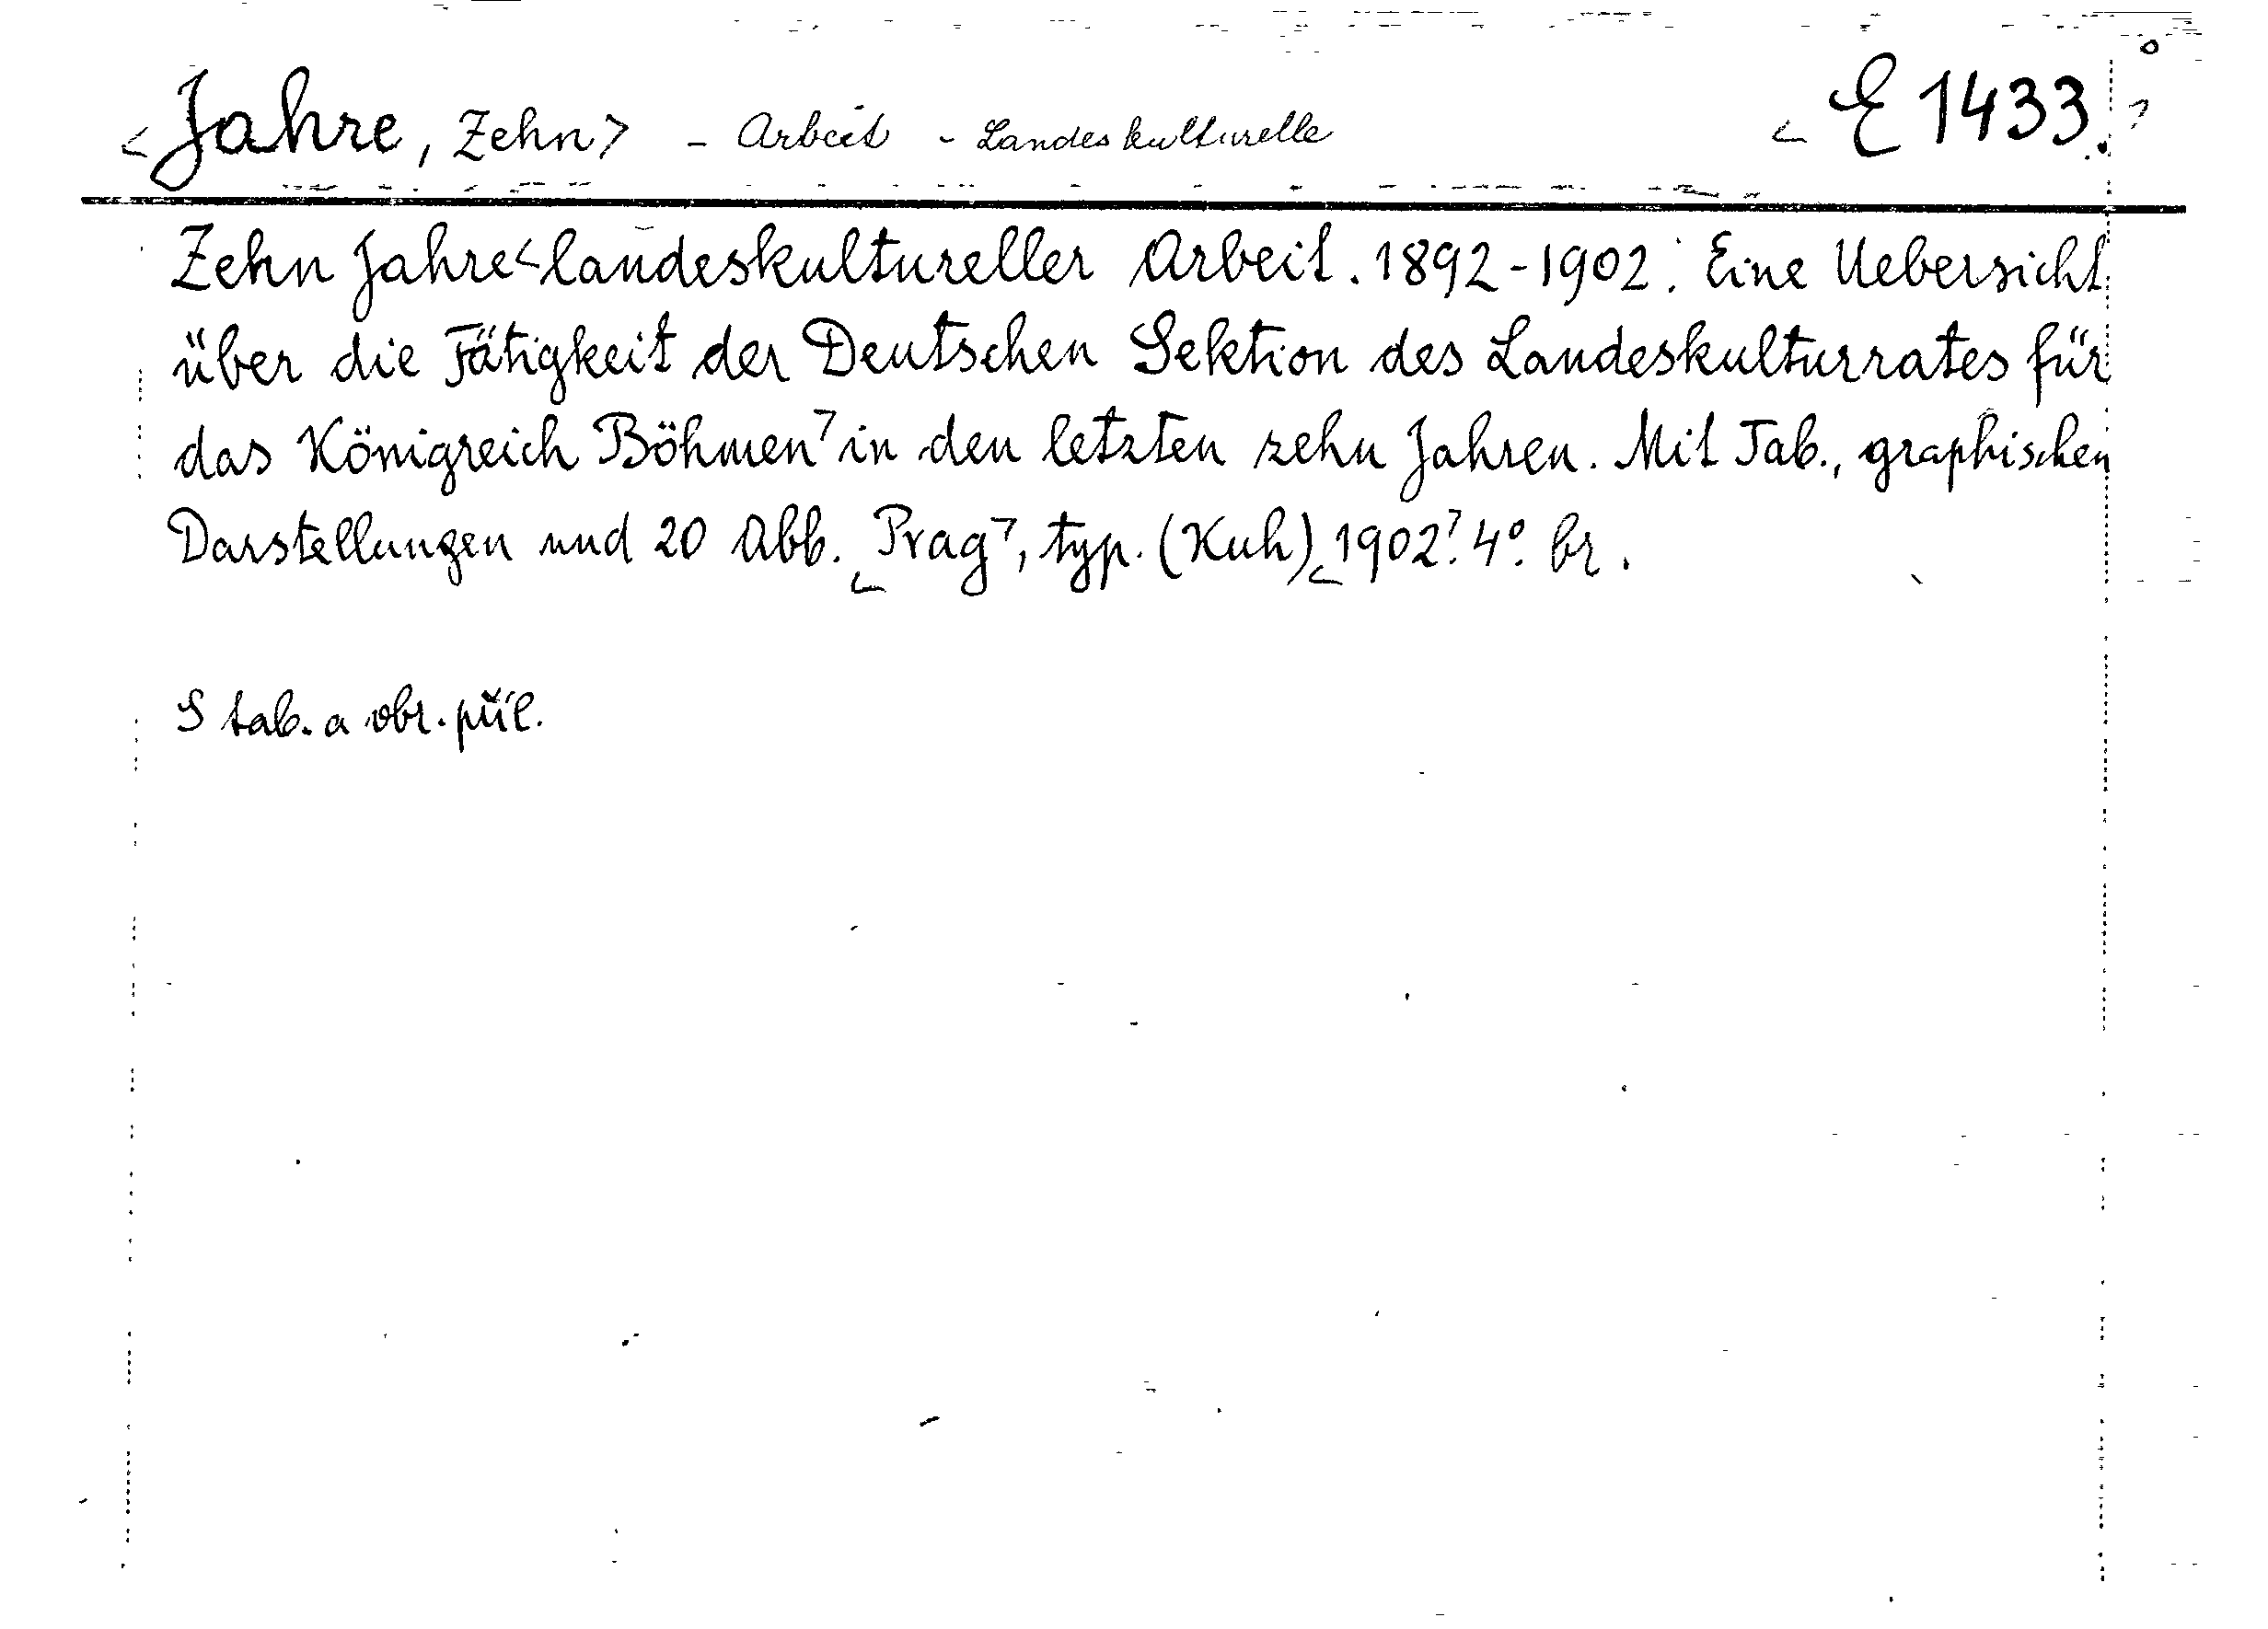 <Jahre, Zehn> - Arbeit - Landeskulturelle <E 1433.>
Zehn Jahre <landeskultureller Arbeit. 1892-1902. Eine Uebersicht
über die Tätigkeit der Deutschen Sektion des Landeskulturrates für
das Königreich Böhmen> in den letzten zehn Jahren. Mit Tab., graphischen
Darstellungen und 20 Abb. <Prag>, typ. (Kuh) <1902>. 4°. br.
S tab. a obr. příl.